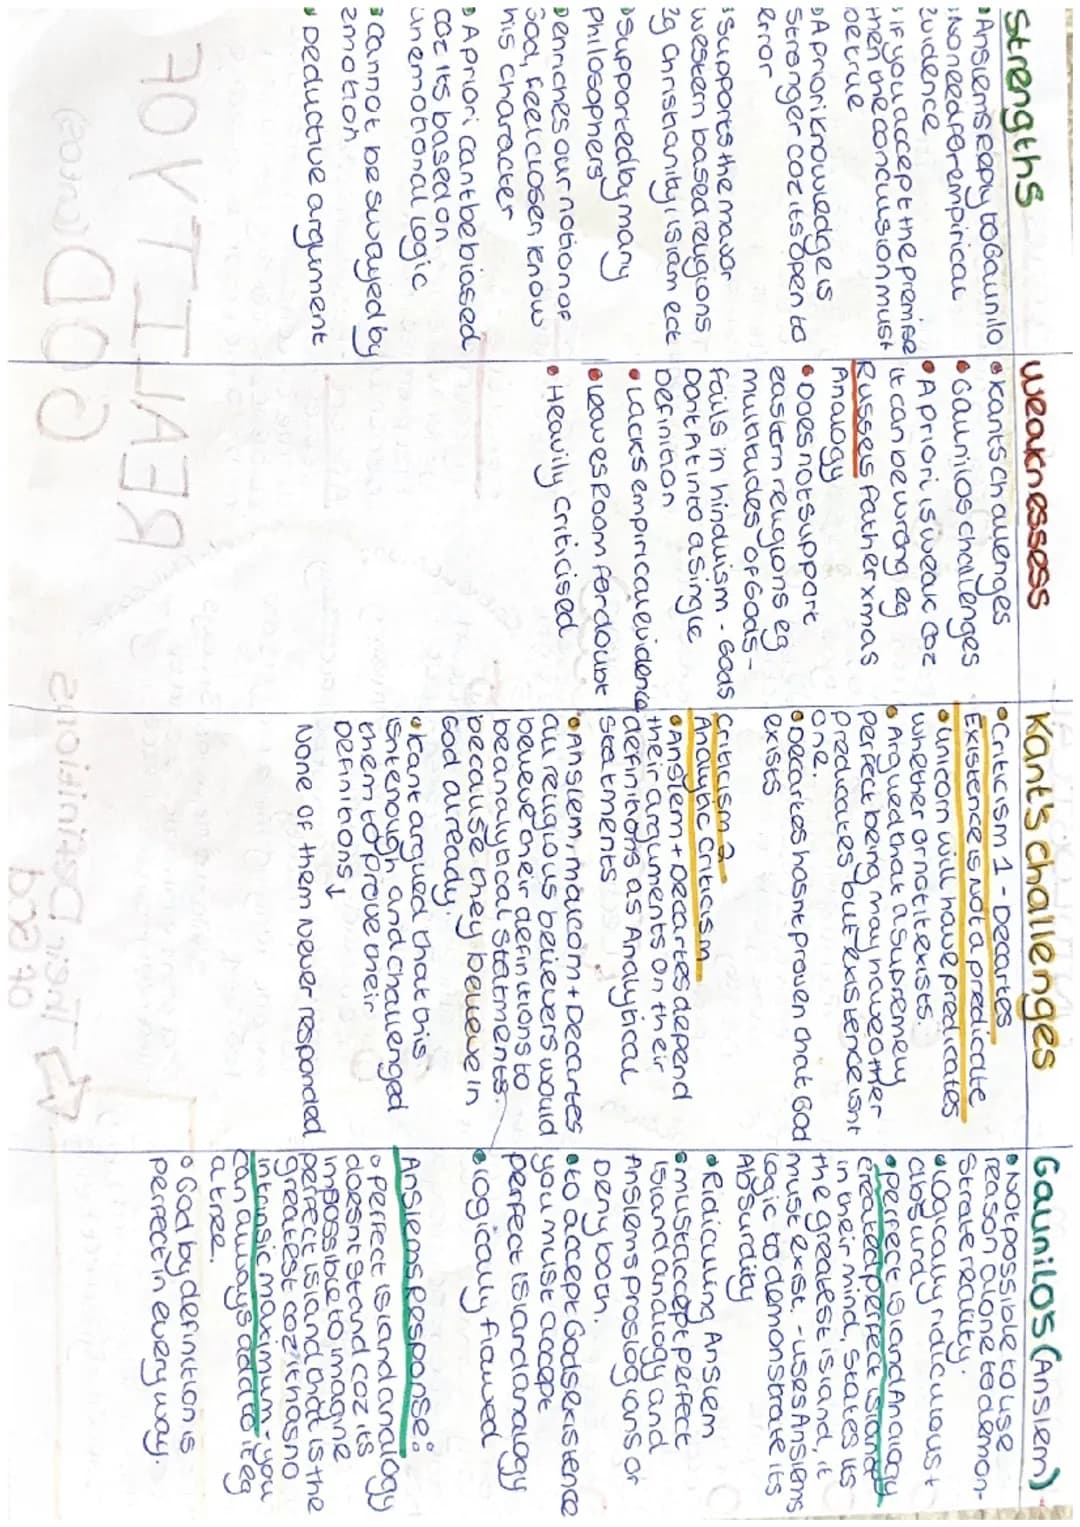 Strengths
Anslems reply to Gaunilo
No need for empirical
Evidence
if you accept the premise
then the conculusion must
be true
A priori knowledge is
stronger coz its open to
error
Supports the maor
western based religions
eg Christianity islam ect
Supported by many
Philosophers
Denriches our notion of
God, feel closer know
his character
A priori cant be biased
coz its based on
unemotional logic
cannot be swayed by
emotion
Deductive argument
weaknessess
Kants challenges
Gaunilos challenges
A priori is weak coz
it can be wrong eg
Russels father xmas
Analogy
Does not support
eastern religions eg
multitudes of Gods -
fails in hinduism - Gods
Dont fit into a single
Definition
Lacks empirical evidence
leaves Room for doubt
Heavily criticised
Kant's challenges
Criticism 1 - Decartes
Existence is Not a predicate
Unicorn will have predicates
whether or not it exists.
Argued that a supremely
perfect being may have other
predicates but existence isnt
one.
Decartes hasnt proven that God
exists
Criticism 2
Analytic Criticism
Anslem + Decartes depend
their arguments on their
definitions as Analytical
Statments
Anslem, malcom + Decartes
all religious believers would
believe their definitions to
be analytical statments.
because they believe in
God already.
Kant argued that this
isnt enough and challenged
them to prove their
Definitions ↓
None of them never responded
Gaunilos (Anslem)
Not possible to use
reason alone to demon-
strate reality.
logically ridiculous +
absurd
perfect island Analogy
created perfect island
in their mind, states its
the greatest island, it
must exist. - uses Anslems
logic to demonstrate its
Absurdity
Ridiculing Anslem
must accept perfect
island analogy and
Anslems proslogians or
Deny both.
to accept Gods existence
you must accept
perfect island analogy
logically flawed
Anslems response:
perfect island analogy
doesnt stand coz its
impossible to imagine
perfect island that is the
greatest coz it has no
intrinsic maximum - you
can always add to it eg
a tree.
God by definition is
perfect in every way.